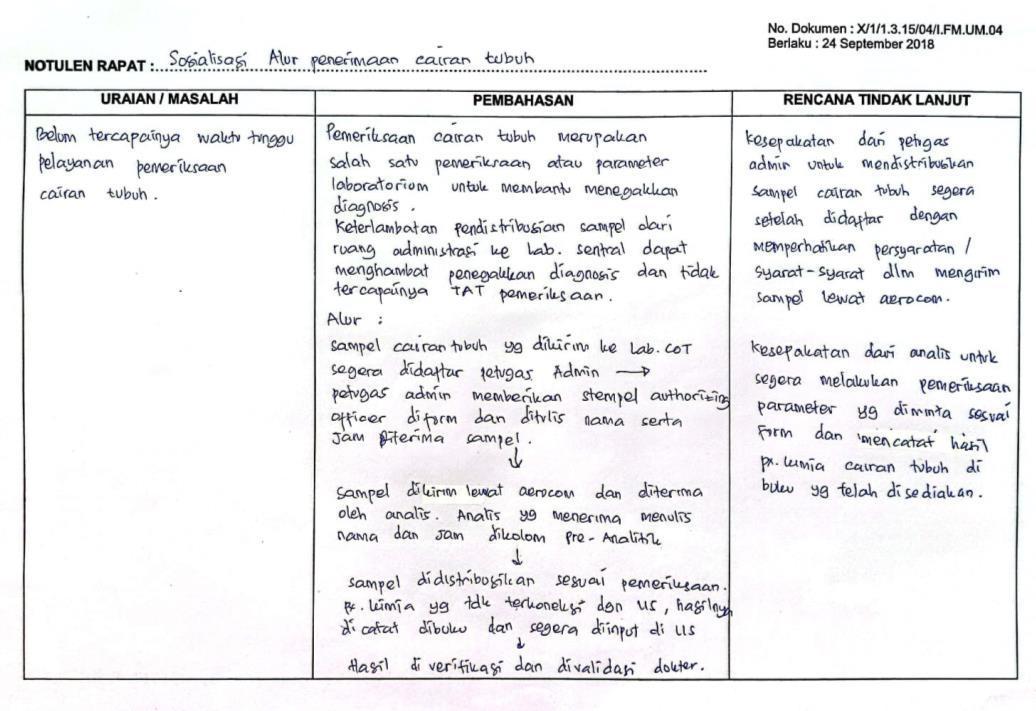 No. Dokumen : X/1/1.3.15/04/I.FM.UM.04
Berlaku : 24 September 2018
NOTULEN RAPAT : Sosialisasi Alur penerimaan cairan tubuh
URAIAN / MASALAH
Belum tercapainya waktu tunggu
pelayanan pemeriksaan
cairan tubuh.
PEMBAHASAN
Pemeriksaan cairan tubuh merupakan
salah satu pemeriksaan atau parameter
laboratorium untuk membantu menegakkan
diagnosis.
Keterlambatan pendistribusian sampel dari
ruang administrasi ke Lab. sentral dapat
menghambat penegakkan diagnosis dan tidak
tercapainya TAT pemeriksaan.
Alur :
Sampel cairan tubuh yg dikirim ke Lab. COT
segera didaftar petugas Admin →
petugas admin memberikan stempel authorizing
officer diform dan ditulis nama serta
Jam diterima sampel.
↓
Sampel dikirim lewat aerocom dan diterima
oleh analis. Analis yg menerima menulis
nama dan Jam dikolom Pre-Analitik
↓
sampel didistribusikan sesuai pemeriksaan.
px. kimia yg tdk terkoneksi dgn LIS, hasilnya
dicatat dibuku dan segera diinput di LIS
↓
Hasil diverifikasi dan divalidasi dokter.
RENCANA TINDAK LANJUT
Kesepakatan dari petugas
admin untuk mendistribusikan
sampel cairan tubuh segera
setelah didaftar dengan
memperhatikan persyaratan /
syarat-syarat dlm mengirim
sampel lewat aerocom.
Kesepakatan dari analis untuk
segera melakukan pemeriksaan
parameter yg diminta sesuai
form dan mencatat hasil
px. kimia cairan tubuh di
buku yg telah disediakan.